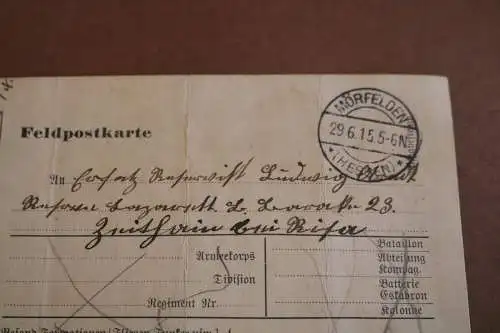 MÖRFELDEN
29.6.15.5-6N.
* (HESSEN) *
Feldpostkarte
An Ersatz Reservist Ludwig
Reserve Lazarett L. Baracke 23.
Zeithain bei Risa
Armeekorps
Division
Regiment Nr.
Bataillon
Abteilung
Kompag.
Batterie
Eskadron
Kolonne